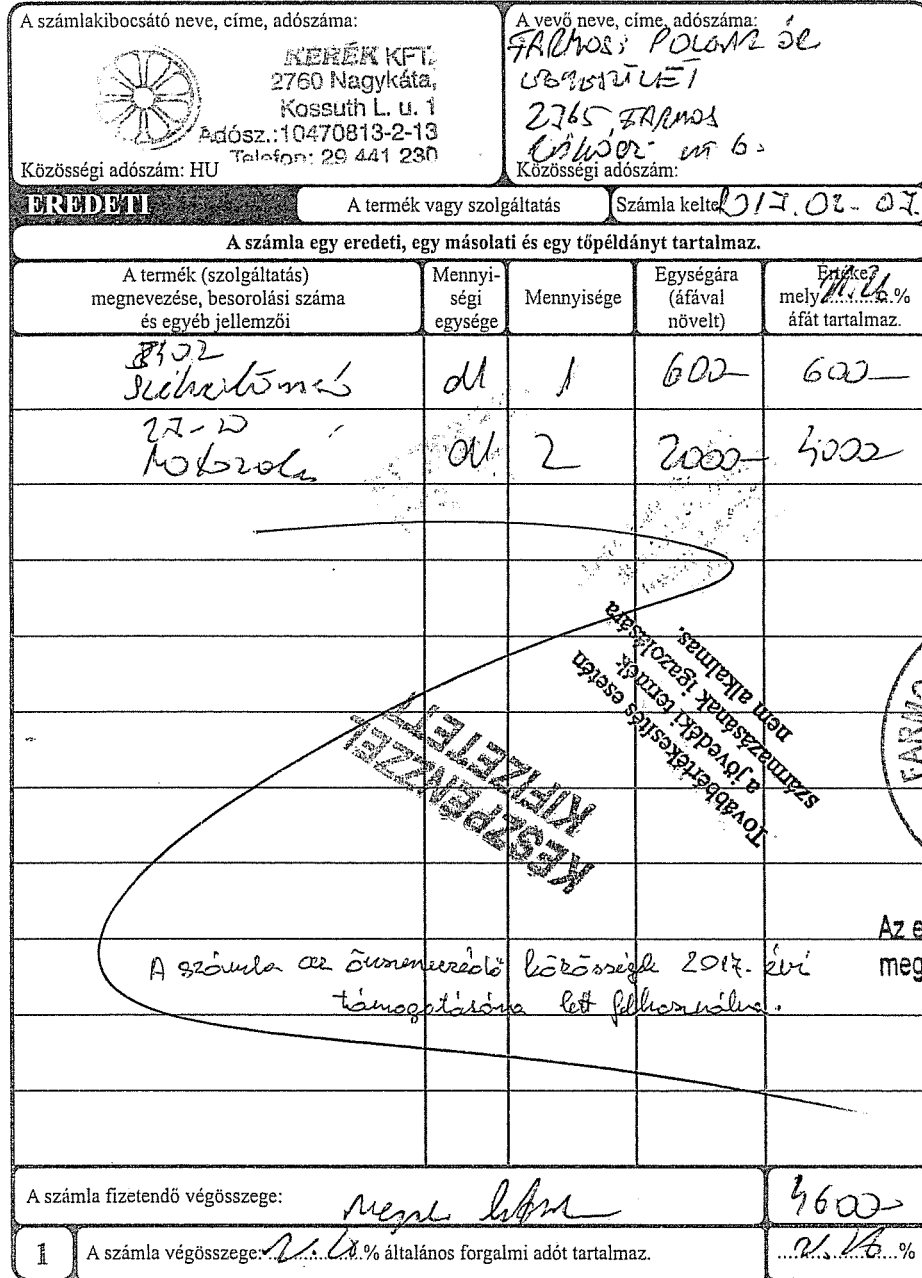 A számlakibocsátó neve, címe, adószáma:
KERÉK KFT.
2760 Nagykáta,
Kossuth L. u. 1
Adósz.:10470813-2-13
Telefon: 29 441 230
Közösségi adószám: HU
A vevő neve, címe, adószáma:
FARMOSI POLGÁR ŐR
2765 FARMOS
6.
Közösségi adószám:
EREDETI
A termék vagy szolgáltatás
Számla kelte 2017.02.07.
A számla egy eredeti, egy másolati és egy tőpéldányt tartalmaz.
A termék (szolgáltatás)
megnevezése, besorolási száma
és egyéb jellemzői
Mennyi-
ségi
egysége
Mennyisége
Egységára
(áfával
növelt)
Értéke,
mely 21.26.%
áfát tartalmaz.
1 600- 600-
27-10
Motorolaj 2 2000- 4000
Továbbértékesítés esetén
a jövedéki termék
származásának igazolására
nem alkalmas.
KÉSZPÉNZZEL
KIFIZETETT
FARMO
Az e
meg
A számla az önszerveződő közösségek 2017. évi
támogatására lett felhasználva.
A számla fizetendő végösszege: 4600-
1
A számla végösszege: 21.26.% általános forgalmi adót tartalmaz.
21.26.%